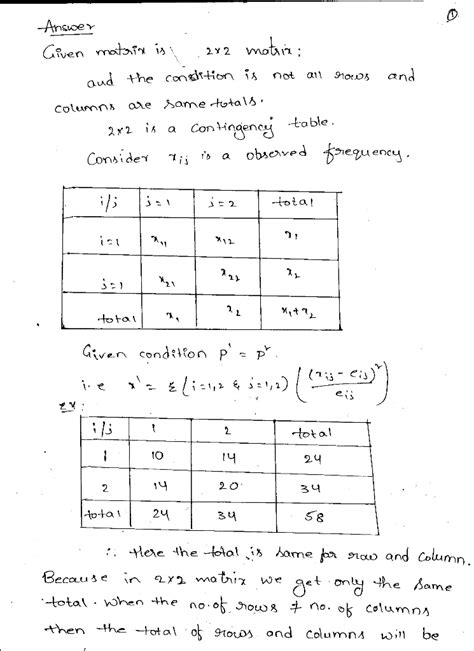 ①
Answer
Given matrix is 2x2 matrix;
and the condition is not all rows and
columns are same totals.
2x2 is a contingency table.
Consider xij is a observed frequency.
i/j j=1 j=2 total
i=1 x11 x12 x1
j=1 x21 x22 x2
total x1 x2 x1+x2
Given condition p' = p''.
i.e x' = Σ(i=1,2 & j=1,2) ((xij - eij)²/eij)
Ex:
i/j 1 2 total
1 10 14 24
2 14 20 34
total 24 34 58
∴ Here the total is same for row and column.
Because in 2x2 matrix we get only the same
total. When the no.of rows ≠ no. of columns
then the total of rows and columns will be